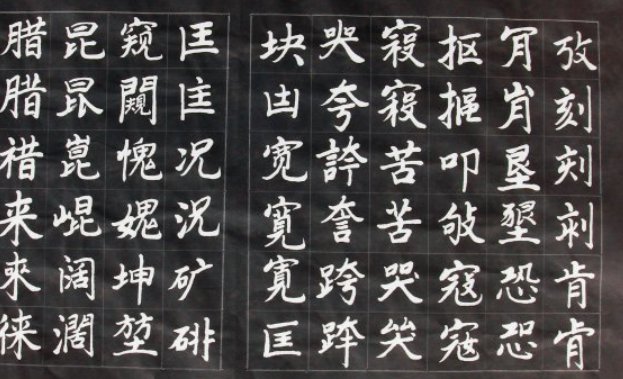 攷刻刻肯肯
肎肯垦墾恐恐
抠摳叩敂寇寇
寇寇苦苦哭
哭夸誇跨跨
块凷宽寬寬匡
匡匡况況矿
窥闚愧媿坤堃
昆昆崑崐阔濶
腊腊来來徕